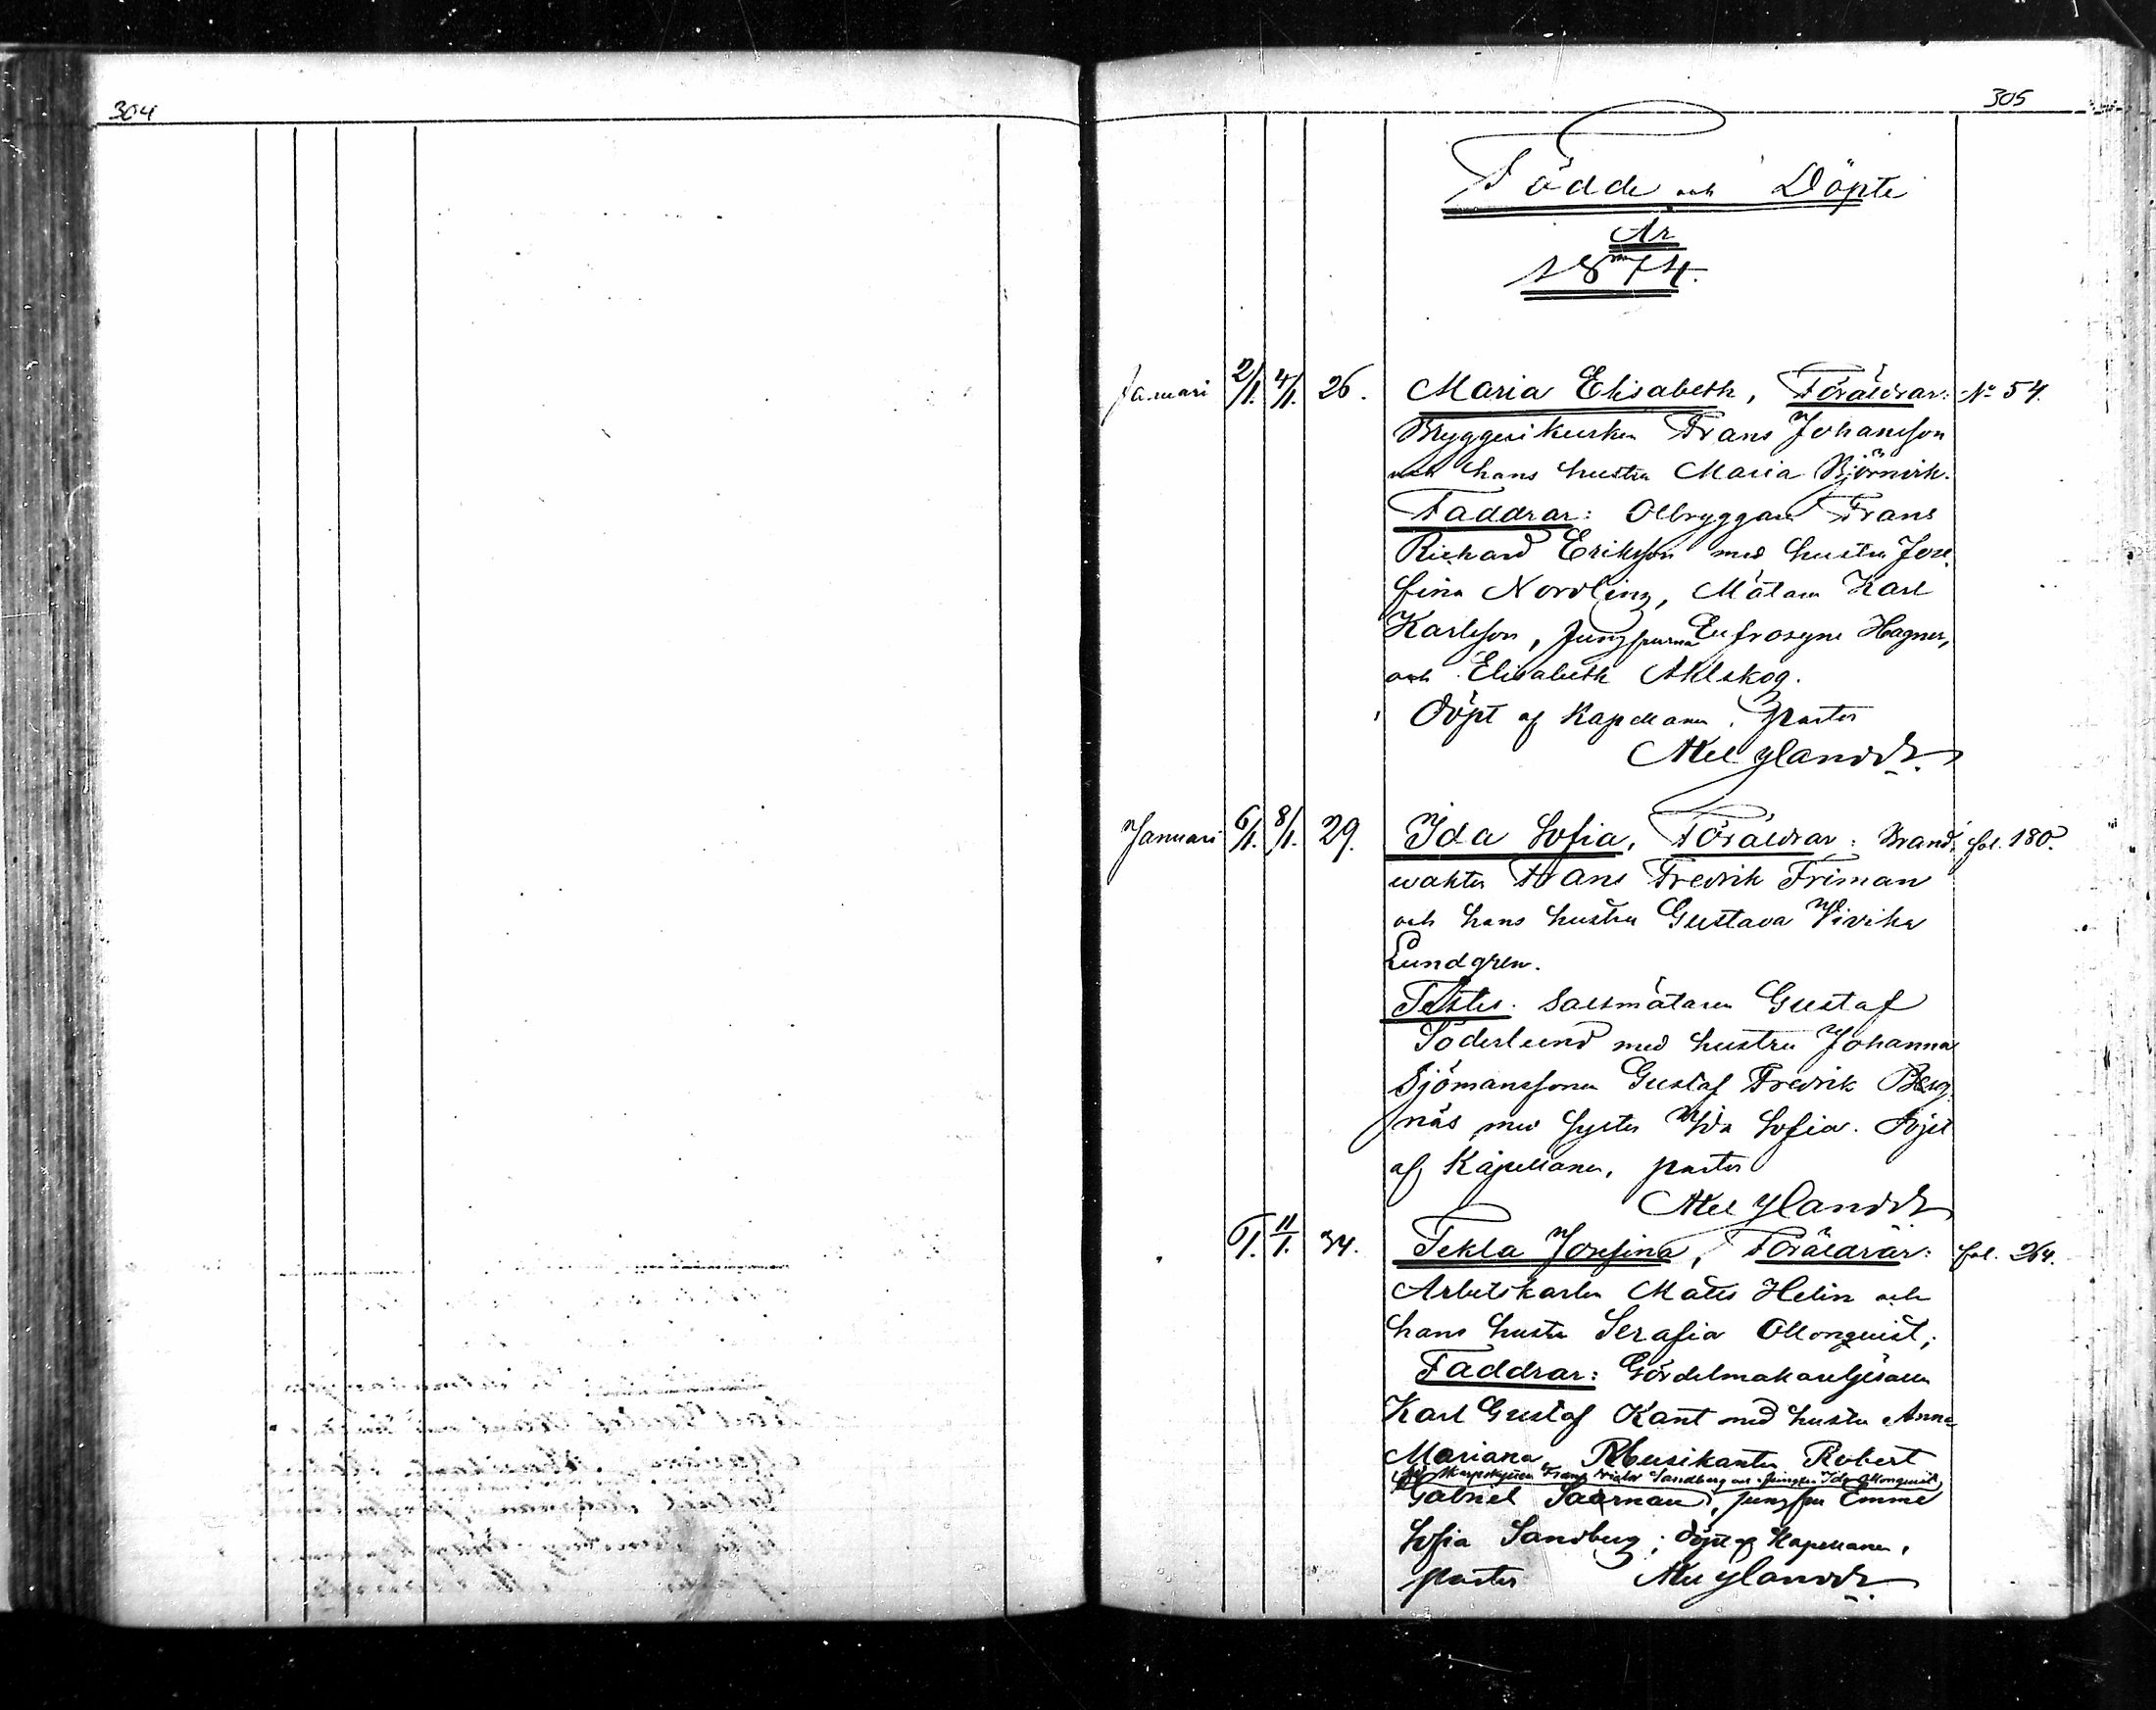 304
305
Födde och Döpte
År
1874.
Januari 2/1. 4/1. 26. Maria Elisabeth, Föräldrar: No 54.
Bryggerikusken Frans Johansson
och hans hustru Maria Björnvik.
Faddrar: Ölbryggare Frans
Richard Eriksson med hustru Jose
fina Nordling, Mätaren Karl
Karlsson, Jungfrurna Eufrosyne Hagner,
och Elisabeth Ahlskog.
Döpt af Kapellanen, pastor
Axel
Januari 6/1. 8/1. 29. Ida Sofia, Föräldrar: Brand- fol. 180.
wakten Frans Fredrik Friman
och hans hustru Gustava Vivika
Lundgren.
Testes: Saltmätaren Gustaf
Söderlund med hustru Johanna
Sjömanssonen Gustaf Fredrik Berg
näs med syster Ida Sofia. Döpt
af Kapellanen, pastor
Axel
6/1. 11/1. 34. Tekla Josefina, Föräldrar: fol. 264.
Arbetskarlen Matts Helin och
hans hustru Serafia Ollonquist;
Faddrar: Gördelmakaregesällen
Karl Gustaf Kant med hustru Anna
Mariana, Musikanten Robert
Skarpskytten Frans Victor Sandberg och Jungfru Ida Ollonquist
Gabriel Saarnau, jungfru Emma
Sofia Sandberg; döpt af Kapellanen,
pastor Axel